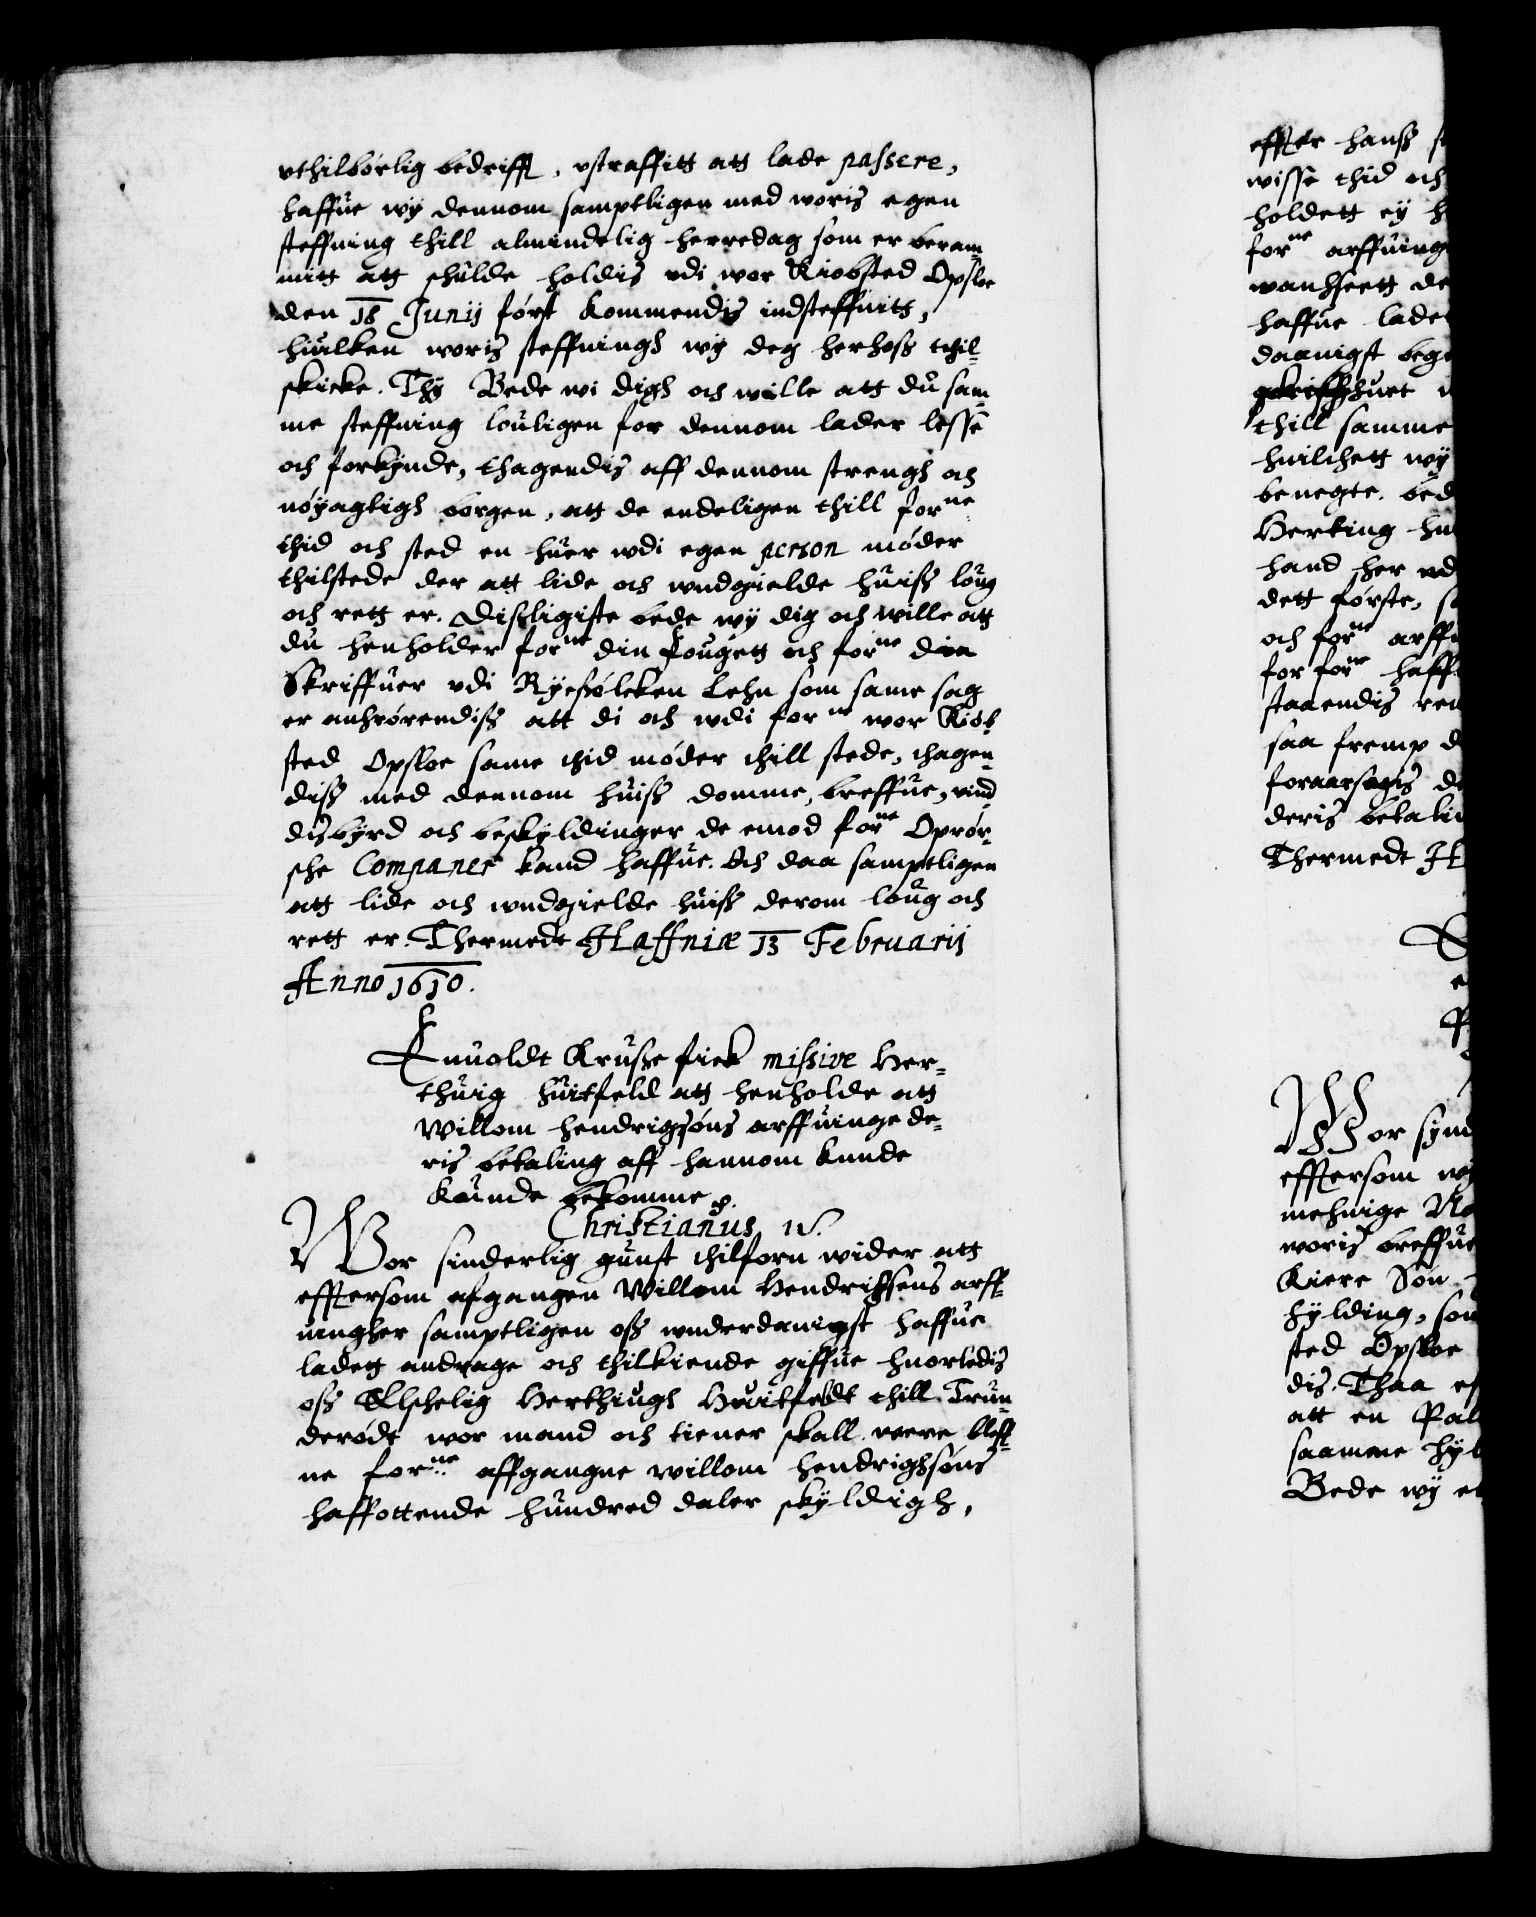 vthilbørlig bedrifft, vstraffitt att lade passere,
haffue wy dennom samptligen med woris egen
steffning thill almindelig herredag som er beram¬
mitt att schulde holdis vdi wor Kiobsted Opsloe
den 18 Junij først kommendis indsteffnitt,
huilken woris steffningh wy deg herhoss thil¬
skicke. Thj Bede wi digh och wille att du sam¬
me steffning louligen for dennom lader lesse
och forkynde, thagendis aff dennom strengh och
nøyagtigh borgen, att de endeligen thill forne
thid och sted en huer wdi egen person møder
thilstede der att lide och wndgielde huiss loug
och rett er. Disligiste bede wy dig och wille att
du henholder forne din fougett och forne din
Skriffuer vdi Ryefsøleken Lehn som same sag
er anhrørendiss att di och wdi forne wor Kiøb
sted Opsloe same thid møder thill stede, thagen¬
diss med dennom huiss domme, breffue, vind¬
disbyrd och beskyldinger de emod forne Oprør¬
sche Companer kand haffue. Och daa samptligen
att lide och wndgielde huiss derom loug och
rett er. Thermedt Haffniæ 13 Februarij
Anno 1610.
Enuoldt Krusse fick missive Her¬
thuig huitfeld att henholde att
Willom hendrigsøns arffuinge de¬
ris betaling aff hannom kunde
kunde bekomme.
Christianus 4.
Wor sinderlig gunst thilforn wider att
efftersom afgangen Willom Hendrichsens arff¬
uingher samptligen oss wnderdanigst haffue
ladett andrage och thilkiende giffue huorledis
oss Elschelig Herthiugh Huitfeldt thill Trun¬
derødt wor mand och tiener skall were bleff¬
ne forne affgangne willom hendrighsøns
haffottende hundred daler skyldigh,
effter hanss
wisse thid och
holdett ey
forne arffuing
wanhsett de
haffue lade
daanigst bege
huet
thill samme
huilchett wy
benegte. bed
Herting
hand her vd
dett første,
och forne arffu
for forne haff
staaendis
saa fremp d
foraarsagis de
deris betali
Thermedt H
Wor synd
efftersom wy
menige No
woris breffue
Kiere Søn
hylding, som
sted Opsloe
dis. Thaa
att en Pal
saamme hyl
Bede wy